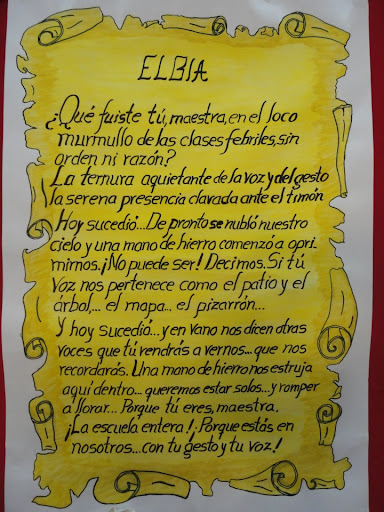 ELBIA
¿Qué fuiste tú, maestra, en el loco
murmullo de las clases febriles, sin
orden ni razón?
La ternura aquietante de la voz y del gesto
la serena presencia clavada ante el timón
Hoy sucedió... De pronto se nubló nuestro
cielo y una mano de hierro comenzó a opri
mirnos. ¡No puede ser! Decimos. Si tú
voz nos pertenece como el patio y el
árbol,... el mapa... el pizarrón...
Y hoy sucedió... y en vano nos dicen otras
voces que tú vendrás a vernos... que nos
recordarás. Una mano de hierro nos estruja
aquí dentro... queremos estar solos... y romper
a llorar... Porque tú eres, maestra.
¡La escuela entera! Porque estás en
nosotros... con tu gesto y tu voz!